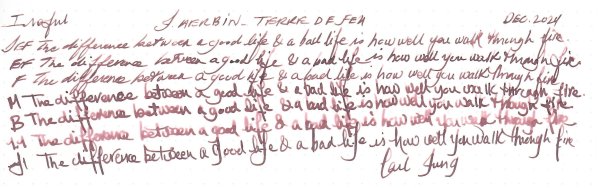 J HERBIN - TERRE DE FEU DEC. 2024
EF The difference between a good life & a bad life is how well you walk through fire.
EF The difference between a good life & a bad life is how well you walk through fire.
F The difference between a good life & a bad life is how well you walk through fire.
M The difference between a good life & a bad life is how well you walk through fire.
B The difference between a good life & a bad life is how well you walk through fire
The difference between a good life & a bad life is how well you walk through fire
The difference between a good life & a bad life is how well you walk through fire
Carl Jung